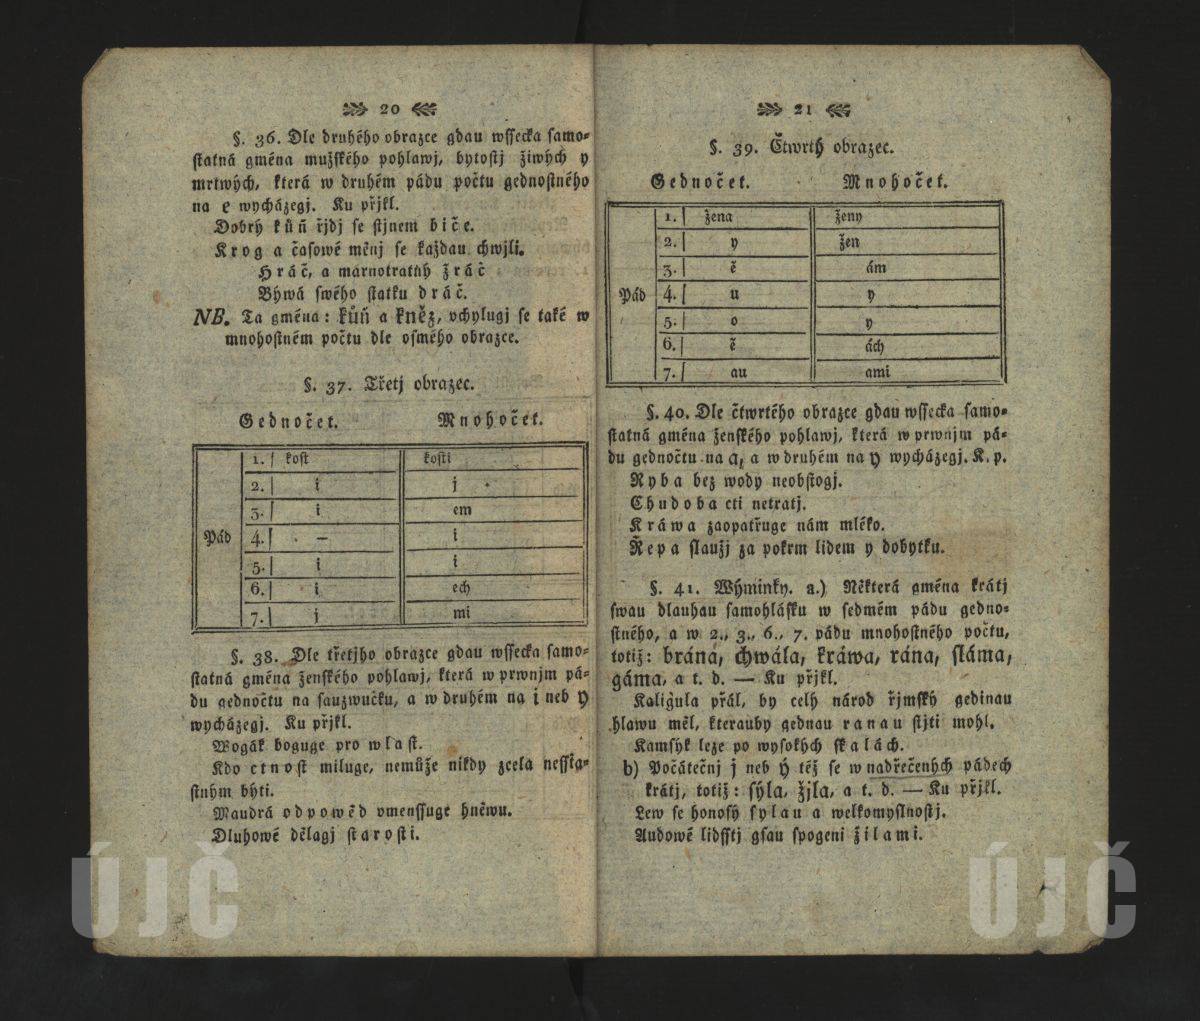 20
§. 36. Dle druhého obrazce gdau wssecka samo-
statná gména mužského pohlawj, bytostj žiwých y
mrtwých, která w druhém pádu počtu gednostného
na e wycházegj. Ku přjkl.
Dobrý kůň řjdj se stjnem biče.
Krog a časowé měnj se každau chwjli.
Hráč, a marnotratný žráč
Bývá swého statku dráč.
NB. Ta gména: kůň a kněz, vchylugj se také w
mnohostném počtu dle osmého obrazce.
§. 37. Třetj obrazec.
Gednočet. Mnohočet.
1. kost kosti
2. i j
3. i em
Pád 4. – i
5. i i
6. i ech
7. j mi
§. 38. Dle třetjho obrazce gdau wssecka samo-
statná gména ženského pohlawj, která w prwnjm pá-
du gednočtu na sauzwučku, a w druhém na i neb y
wycházegj. Ku přjkl.
Wogák boguge pro wlast.
Kdo ctnost miluge, nemůže nikdy zcela nessťa-
stným býti.
Maudrá odpowěd vmenssuge hněwu.
Dluhowé dělagj starosti.
21
§. 39. Čtwrtý obrazec.
Gednočet. Mnohočet.
1. žena ženy
2. y žen
3. ě ám
Pád 4. u y
5. o y
6. ě ách
7. au ami
§. 40. Dle čtwrtého obrazce gdau wssecka samo-
statná gména ženského pohlawj, která w prwnjm pá-
du gednočtu na a, a w druhém na y wycházegj. K. p.
Ryba bez wody neobstogj.
Chudoba cti netratj.
Kráwa zaopatřuge nám mléko.
Řepa slaužj za pokrm lidem y dobytku.
§. 41. Wýminky. a.) Některá gména krátj
swau dlauhau samohlásku w sedmém pádu gedno-
stného, a w 2., 3., 6., 7. pádu mnohostného počtu,
totiž: brána, chwála, kráwa, rána, sláma,
gáma, a t. d. — Ku přjkl.
Kaligula přál, by celý národ řjmský gedinau
hlawu měl, kterauby gednau ranau stjti mohl.
Kamsýk leze po wysokých skalách.
b) Počátečnj j neb ý též se w nadřečených pádech
krátj, totiž: sýla, žjla, a t. d. — Ku přjkl.
Lew se honosý sylau a welkomyslnostj.
Audowé lidsstj gsau spogeni žilami.
ÚJČ
ÚJČ